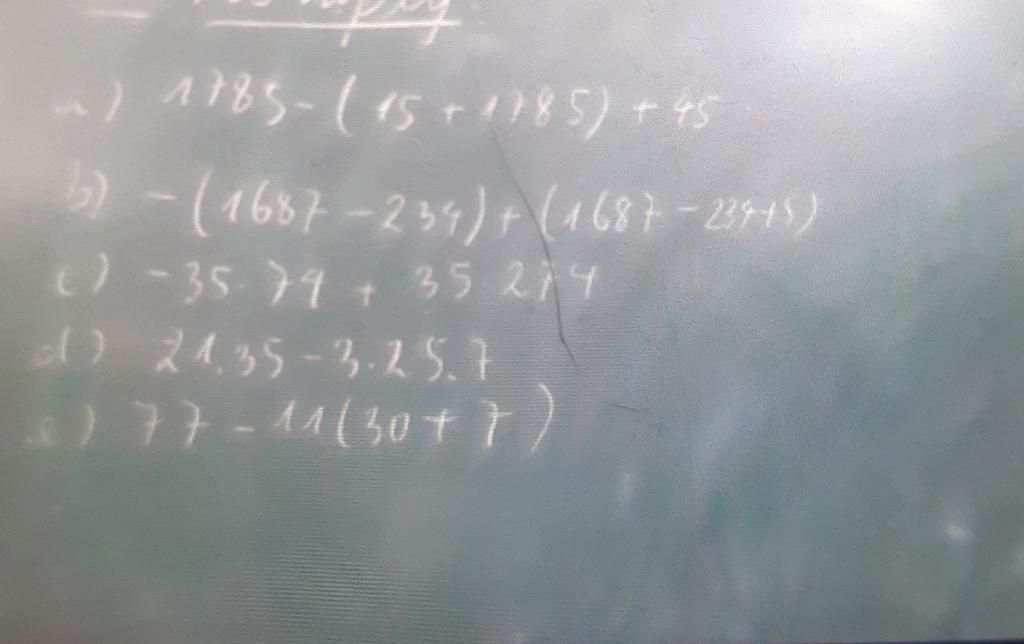 a) 1785 - (15 + 1785) + 45
b) - (1687 - 234) + (1687 - 234 + 5)
c) - 35 . 74 + 35 . 274
d) 21 . 35 - 3 . 25 . 7
e) 77 - 11 (30 + 7)